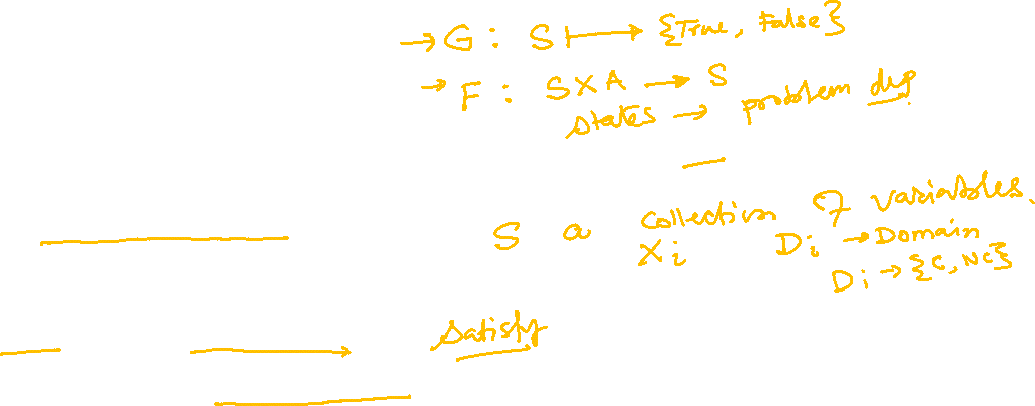 → G : S ↦ {True, False}
→ F : S X A → S
states → problem dep
S a collection of variables.
Xi Di → Domain
Di → {C, NC}
satisfy